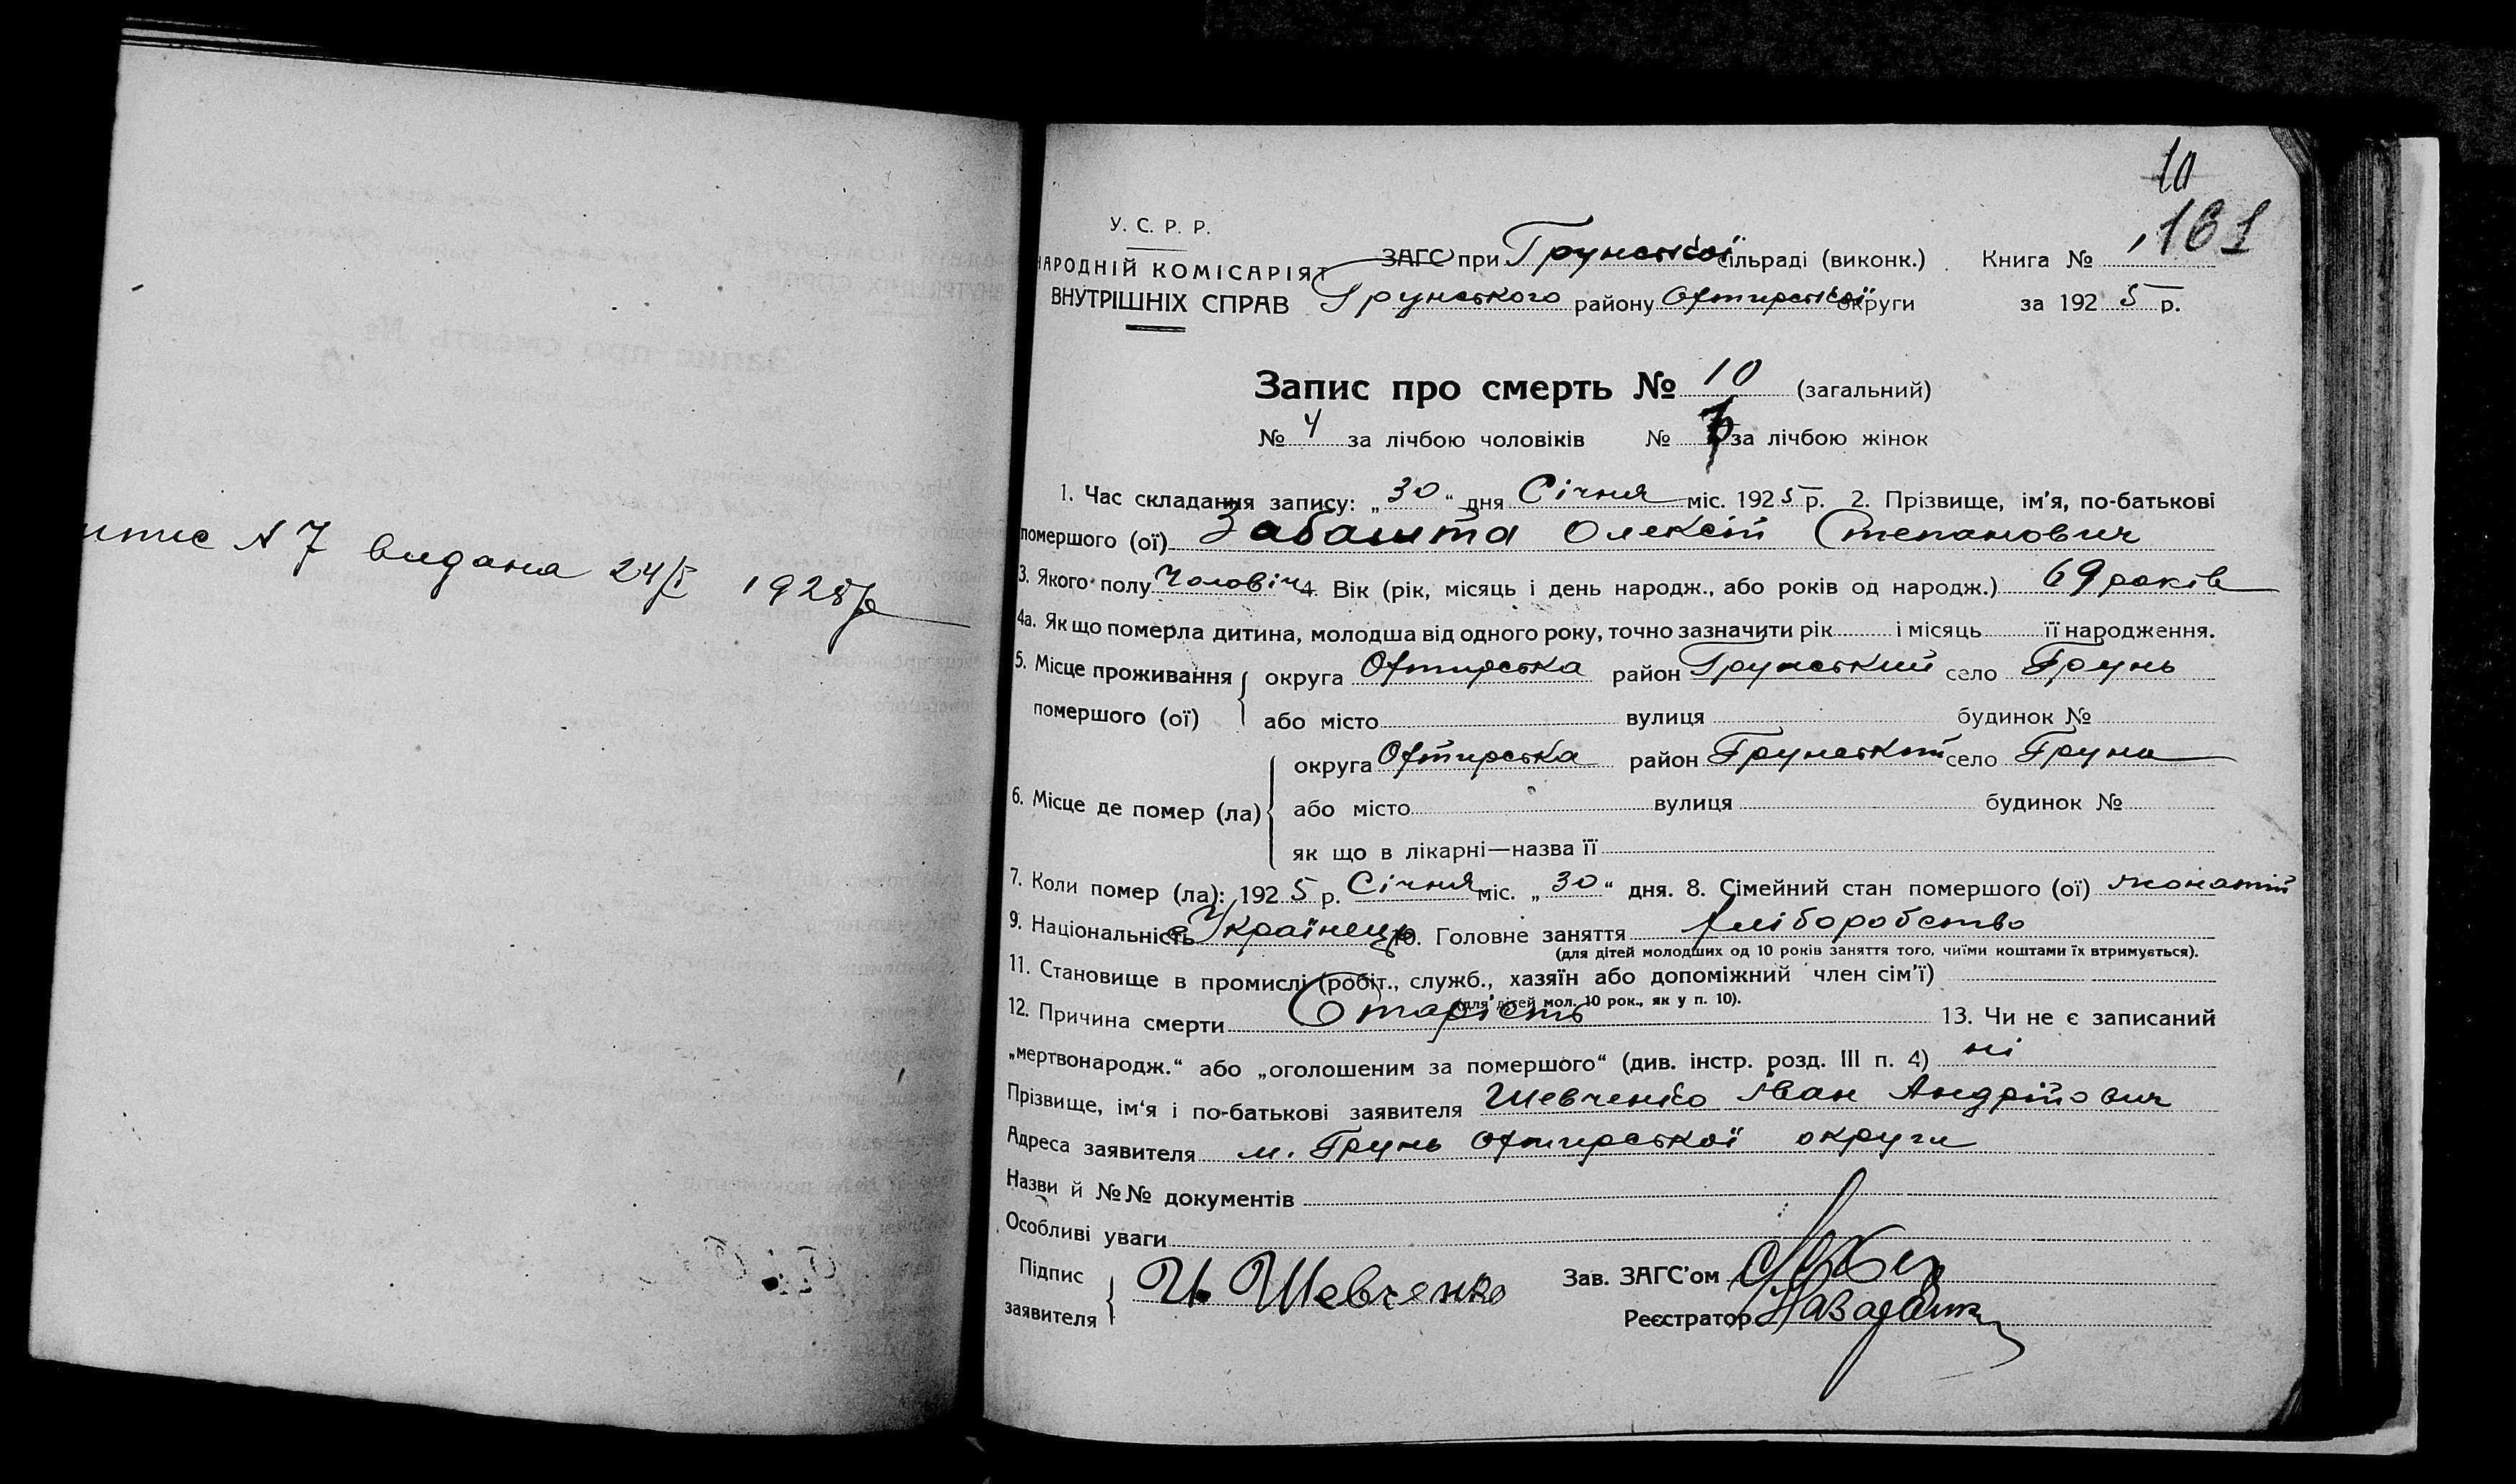 випис N 7 видана 24/I 1925 р
10
161
У. С. Р. Р.
НАРОДНІЙ КОМІСАРІЯТ
ВНУТРІШНІХ СПРАВ
ЗАГС при Грунської сільраді (виконк.) Книга №
Грунського району Охтирської округи за 1925 р.
Запис про смерть № 10 (загальний)
№ 4 за лічбою чоловіків № за лічбою жінок
1. Час складання запису: „30“ дня Січня міс. 1925 р. 2. Прізвище, ім'я, по-батькові
помершого (ої) Забашта Олексій Степанович
3. Якого полу Чоловіч 4. Вік (рік, місяць і день народж., або років од народж.) 69 років
4а. Як що померла дитина, молодша від одного року, точно зазначити рік і місяць її народження.
5. Місце проживання округа Охтирська район Грунський село Грунь
помершого (ої) або місто вулиця будинок №
округа Охтирська район Грунський село Грунь
6. Місце де помер (ла) або місто вулиця будинок №
як що в лікарні—назва її
7. Коли помер (ла): 1925 р. Січня міс. „30“ дня. 8. Сімейний стан помершого (ої) жонатий
9. Національність Українець 10. Головне заняття хліборобство
(для дітей молодших од 10 років заняття того, чиїми коштами їх втримується).
11. Становище в промислі (робіт., служб., хазяїн або допоміжний член сім'ї)
(для дітей мол. 10 рок., як у п. 10).
12. Причина смерти Старість 13. Чи не є записаний
„мертвонародж.“ або „оголошеним за помершого“ (див. інстр. розд. III п. 4) ні
Прізвище, ім'я і по-батькові заявителя Шевченко Іван Андрійович
Адреса заявителя м. Грунь Охтирської округи
Назви й №№ документів
Особливі уваги
Підпис
заявителя И Шевченко
Зав. ЗАГС'ом
Реєстратор